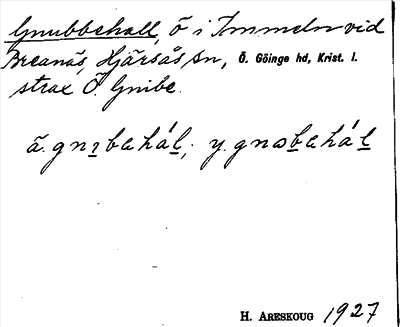 Gnubbehall, ö i Immeln vid
Breanäs, Hjärsås sn, Ö. Göinge hd, Krist. l.
strax Ö. Gnibe.
ä. gnɿbahál; y. gnɷbahál
H. ARESKOUG 1927